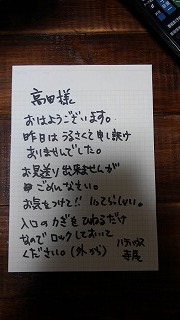 高田様
おはようございます。
昨日はうるさくて申し訳
ありませんでした。
お見送り出来ませんが
ごめんなさい。
お気をつけて!! いってらっしゃい。
入口のカギをひねるだけ
なのでロックしておいて
ください。(外から)
寺尾